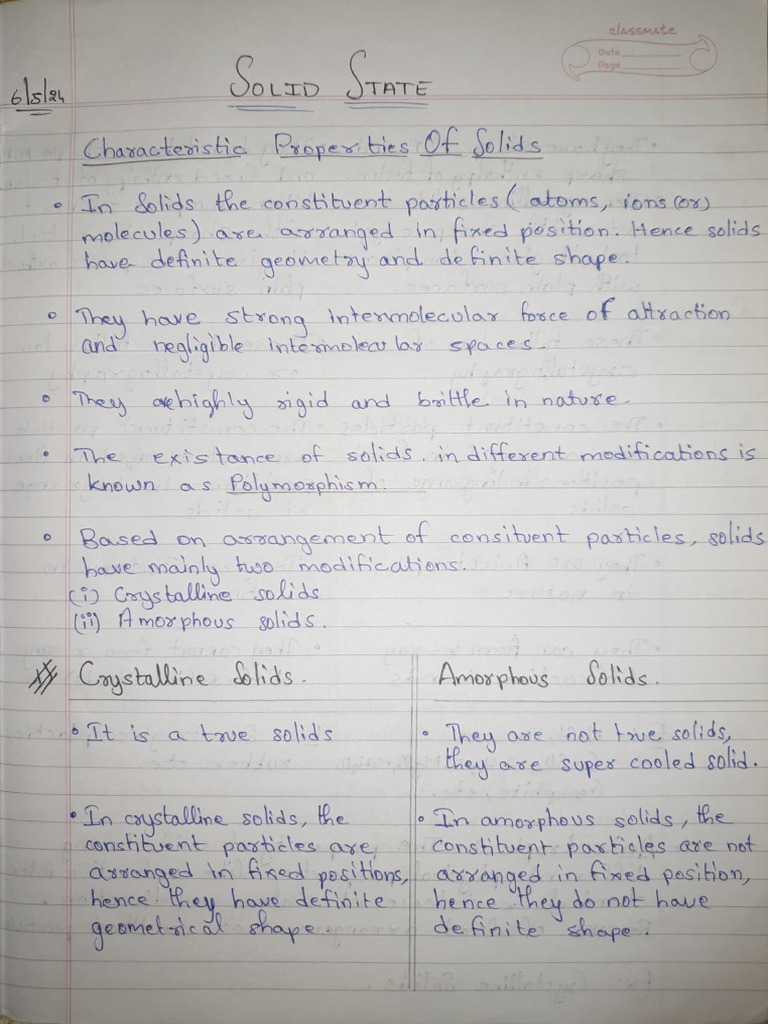 classmate
Date
Page
6/5/24
SOLID STATE
Characteristic Properties Of Solids
• In Solids the constituent particles ( atoms, ions (or)
molecules) are arranged in fixed position. Hence solids
have definite geometry and definite shape.
• They have strong intermolecular force of attraction
and negligible intermolecular spaces.
• They are highly rigid and brittle in nature.
• The existance of solids in different modifications is
known as Polymorphism.
• Based on arrangement of consituent particles, solids
have mainly two modifications.
(i) Crystalline solids
(ii) Amorphous solids.
Crystalline Solids.
• It is a true solids
• In crystalline solids, the
constituent particles are
arranged in fixed positions,
hence they have definite
geometrical shape.
Amorphous Solids.
• They are not true solids,
they are super cooled solid.
• In amorphous solids, the
constituent particles are not
arranged in fixed position,
hence they do not have
definite shape.